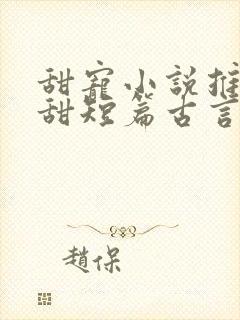 甜寵小說推
甜短篇古言
趙保